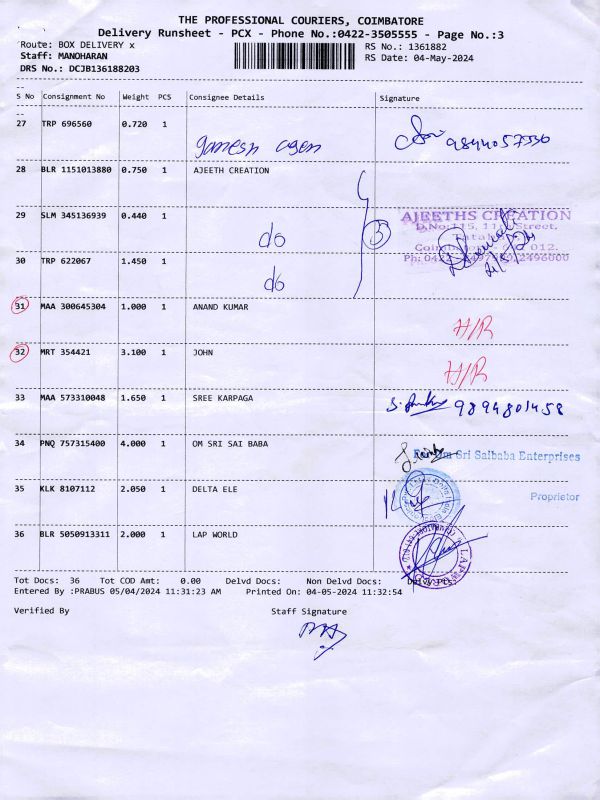 THE PROFESSIONAL COURIERS, COIMBATORE
Delivery Runsheet - PCX - Phone No.:0422-3505555 - Page No.:3
Route: BOX DELIVERY x
RS No.: 1361882
Staff: MANOHARAN
RS Date: 04-May-2024
DRS No.: DCJB136188203
S No Consignment No Weight PCS Consignee Details Signature
27 TRP 696560 0.720 1
ganesh agen
28 BLR 1151013880 0.750 1 AJEETH CREATION
29 SLM 345136939 0.440 1
do
3
AJEETHS CREATION
D.No:115, 11th Street,
Coimbatore 012.
30 TRP 622067 1.450 1
do
31 MAA 300645304 1.000 1 ANAND KUMAR
H/R
32 MRT 354421 3.100 1 JOHN
H/R
33 MAA 573310048 1.650 1 SREE KARPAGA
9894801458
34 PNQ 757315400 4.000 1 OM SRI SAI BABA
Sri Saibaba Enterprises
35 KLK 8107112 2.050 1 DELTA ELE
Proprietor
36 BLR 5050913311 2.000 1 LAP WORLD
Tot Docs: 36 Tot COD Amt: 0.00 Delvd Docs: Non Delvd Docs:
Entered By :PRABUS 05/04/2024 11:31:23 AM Printed On: 04-05-2024 11:32:54
Verified By Staff Signature